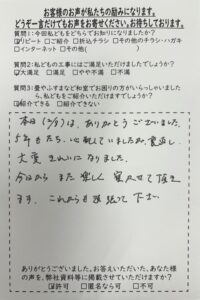 お客様のお声が私たちの励みになります。
どうぞ一言だけでもお声をお寄せください。お待ちしております。
質問1:今回私どもをどちらでお知りになりましたか?
☑リピート □ご紹介 □折込チラシ □その他のチラシ・ハガキ
□インターネット □その他( )
質問2:私どもの工事にはご満足いただけましたでしょうか?
☑大満足 □満足 □やや不満 □不満
質問3:畳やふすまなど和室でお困りの方がいらっしゃいましたら、
私どもをご紹介いただけますでしょうか?
☑紹介できる □紹介できない
本日(2/9)は、ありがとうございました。
5年もたち、心配していましたが、裏返し
大変きれいになりました。
今日からまた楽しく
頂き
ます。これからも頑張って下さい
ありがとうございました。お答えいただいた、あなた様
の声を、弊社資料等に掲載させていただけますか?
☑許可 □匿名なら可 □不可